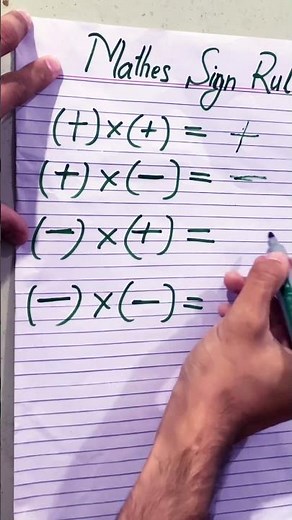 Mathes Sign Rul
(+)×(+) = +
(+)×(−) = −
(−)×(+) =
(−)×(−) =